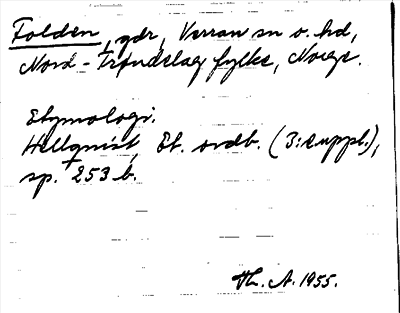 Folden, gdr, Verran sn o. hd,
Nord-Trøndelag fylke, Norge.
Etymologi:
Hellquist, Et. ordb. (3:e uppl.),
sp. 253 b.
Th. A. 1955.